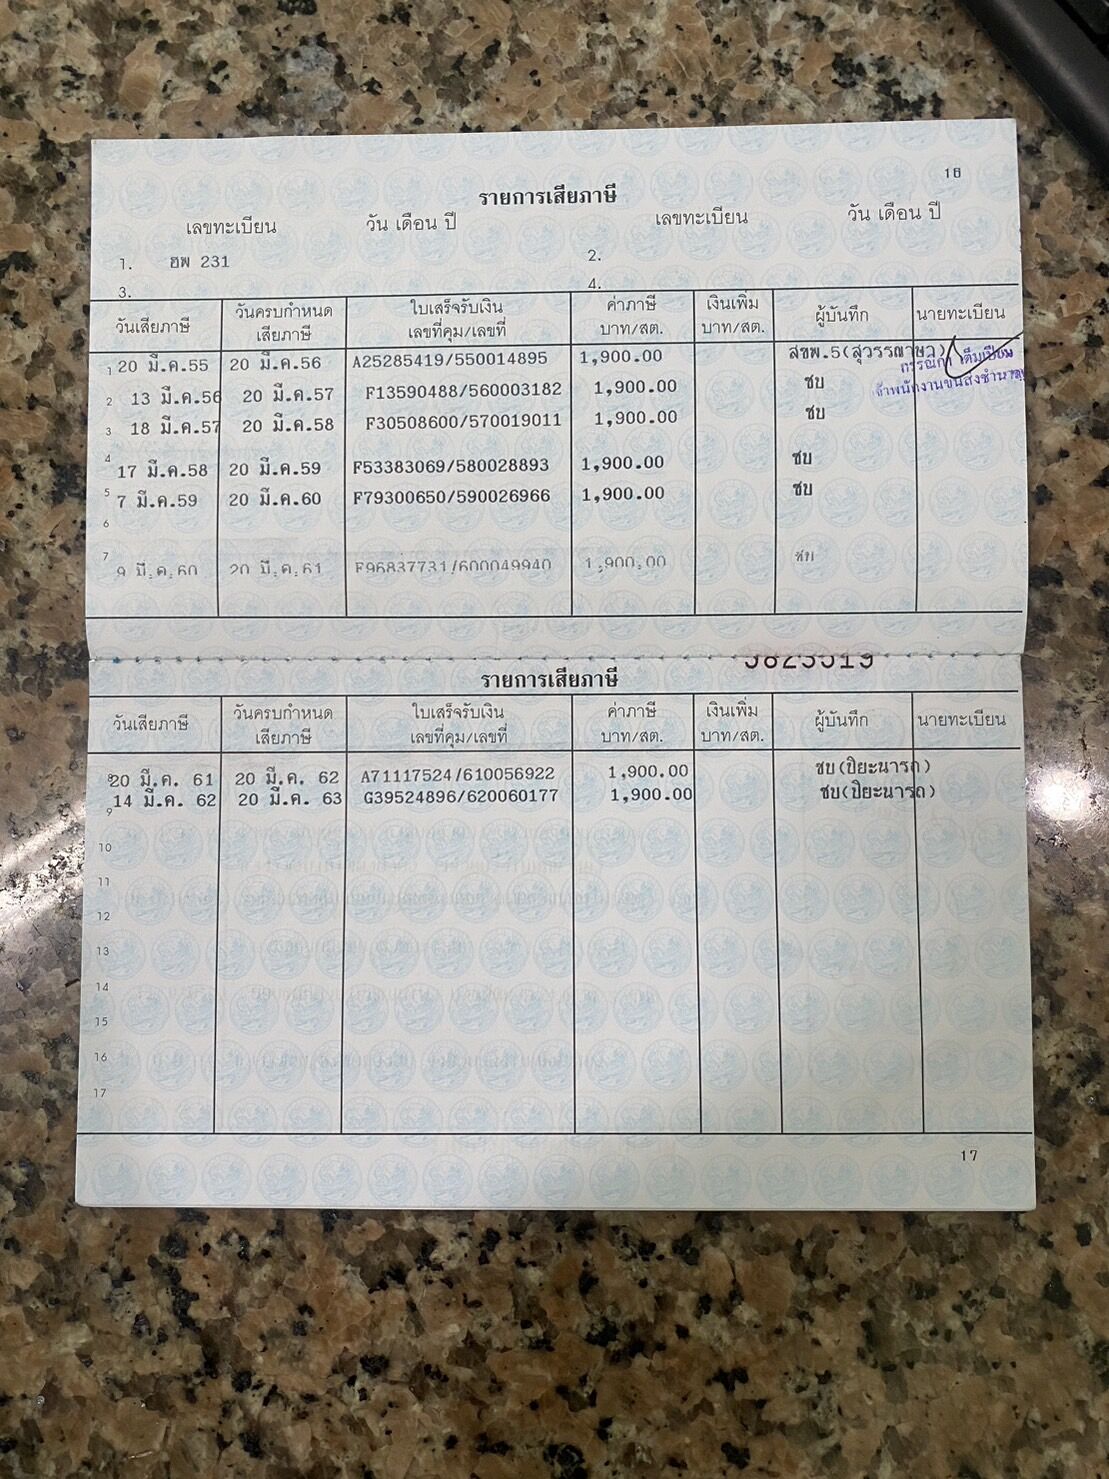 16
รายการเสียภาษี
เลขทะเบียน วัน เดือน ปี เลขทะเบียน วัน เดือน ปี
1. ฮพ 231 2.
3. 4.
วันเสียภาษี วันครบกำหนดเสียภาษี ใบเสร็จรับเงิน เลขที่คุม/เลขที่ ค่าภาษี บาท/สต. เงินเพิ่ม บาท/สต. ผู้บันทึก นายทะเบียน
1 20 มี.ค.55 20 มี.ค.56 A25285419/550014895 1,900.00 สขพ.5(สุวรรณาษา)
2 13 มี.ค.56 20 มี.ค.57 F13590488/560003182 1,900.00 ชบ
3 18 มี.ค.57 20 มี.ค.58 F30508600/570019011 1,900.00 ชบ
4 17 มี.ค.58 20 มี.ค.59 F53383069/580028893 1,900.00 ชบ
5 7 มี.ค.59 20 มี.ค.60 F79300650/590026966 1,900.00 ชบ
6
7 9 มี.ค.60 20 มี.ค.61 F96837731/600049940 1,900.00 ชบ
5823519
รายการเสียภาษี
วันเสียภาษี วันครบกำหนดเสียภาษี ใบเสร็จรับเงิน เลขที่คุม/เลขที่ ค่าภาษี บาท/สต. เงินเพิ่ม บาท/สต. ผู้บันทึก นายทะเบียน
8 20 มี.ค. 61 20 มี.ค. 62 A71117524/610056922 1,900.00 ชบ(ปิยะนารถ)
9 14 มี.ค. 62 20 มี.ค. 63 G39524896/620060177 1,900.00 ชบ(ปิยะนารถ)
10
11
12
13
14
15
16
17
17